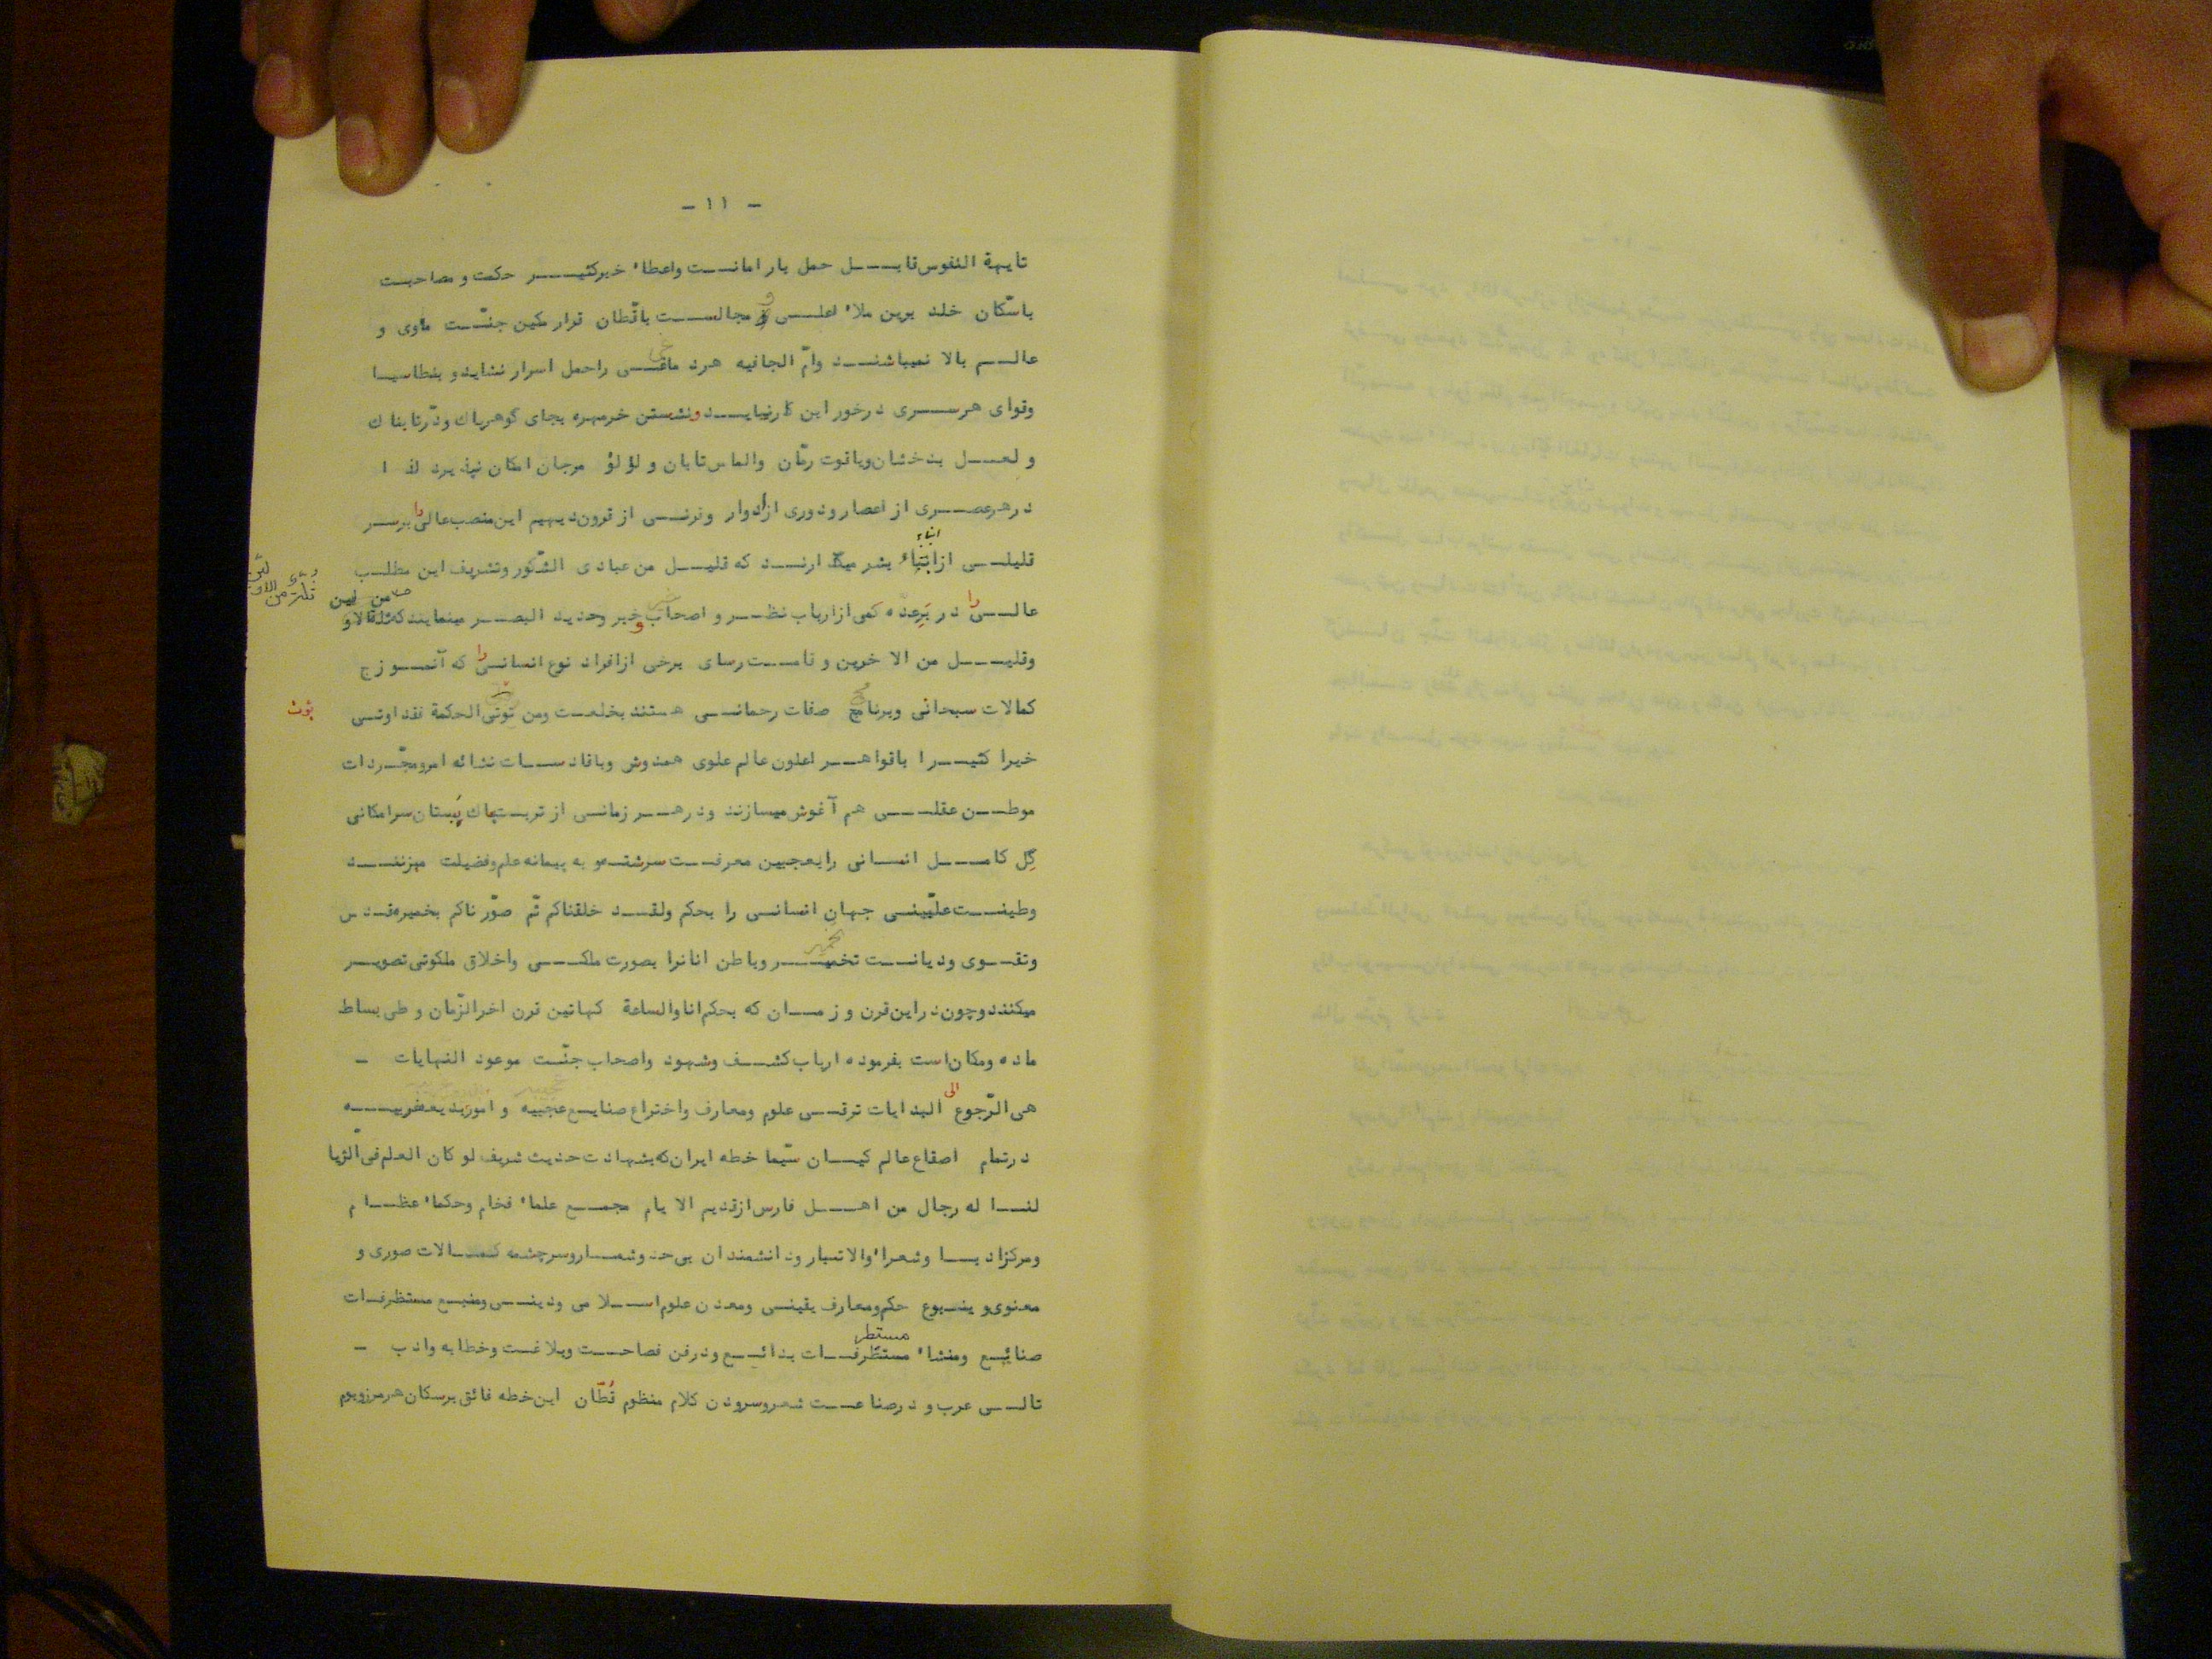 - ١١ -
تایهة النفوس قابل حمل بار امانت واعطاء خیرکثیر حکمت و مصاحبت
باسّکان خلد برین ملاء اعلی و مجالست باقّطان قرار مکین جنّت ماوی و
عالم بالا نمیباشند وامّ الجافیه هرد ماغی راحمل اسرار نشاید و بنطاسیا
وقوای هرسری درخور این کارنیاید ونشستن خرمهره بجای گوهرپاک ودّرتابناک
و لعل بدخشان ویاقوت رمّان والماس تابان و لؤلؤ مرجان امکان نپذیرد لذ ا
درهرعصری از اعصار ودوری ازادوار وقرنی از قرون دیهیم این منصب عالی را برسر
انباء
قلیلی ازابناء بشر میگذارند که قلیل من عبادی الشّکور وتشریف این مطلب
عالی را در بَرِعدّه کمی ازارباب نظر و اصحاب خبر وحدید البصر مینمایند
وقلیل من الاخرین و قامت رسای برخی ازافراد نوع انسانی را که آنموزج
کمالات سبحانی وبرنامج صفات رحمانی هستند بخلعت ومن توتی الحکمة فقد اوتی
خیرا کثیرا باقواهر اعلون عالم علوی همدوش وباقادسات نشائه امرومجّردات
موطن عقلی هم آغوش میسازند ودرهر زمانی از تربت پاک بُستان سرامکانی
گِل کامل انسانی رابعجبین معرفت سرشته و به پیمانه علم وفضیلت میزنند
وطینت علّیینی جهان انسانی را بحکم ولقد خلقناکم ثّم صوّرناکم بخمیره قدس
وتقوی ودیانت تخمیر وباطن انانرا بصورت ملکی واخلاق ملکوتی تصویر
میکنندوچون دراین قرن و زمان که بحکم اناوالساعة کهاتین قرن اخرالزّمان و طی بساط
ماده ومکان است بفرموده ارباب کشف وشهود واصحاب جنّت موعود النهایات -
هی الرّجوع الی البدایات ترقی علوم ومعارف واختراع صنایع عجیبه و اموربدیعه غریبه
درتمام اصقاع عالم کیان سیّما خطه ایران که بشهادت حدیث شریف لو کان العلم فی الّثریا
لنا له رجال من اهل فارس ازقدیم الایام مجمع علماء فخام وحکماء عظام
ومرکزادبا وشعراء والاتبار ودانشمندان بی حد وشمار وسرچشمه کمالات صوری و
معنوی و ینبوع حکم ومعارف یقینی ومعدن علوم اسلامی ودینی ومنبع مستظرفات
مستطر
صنائع ومنشاء مستظرفات بدائع ودرفن فصاحت وبلاغت وخطابه وادب -
تالی عرب و درصناعت شعر وسرودن کلام منظوم قُطّان این خطه فائق برسکان هرمرزوبوم
یؤت